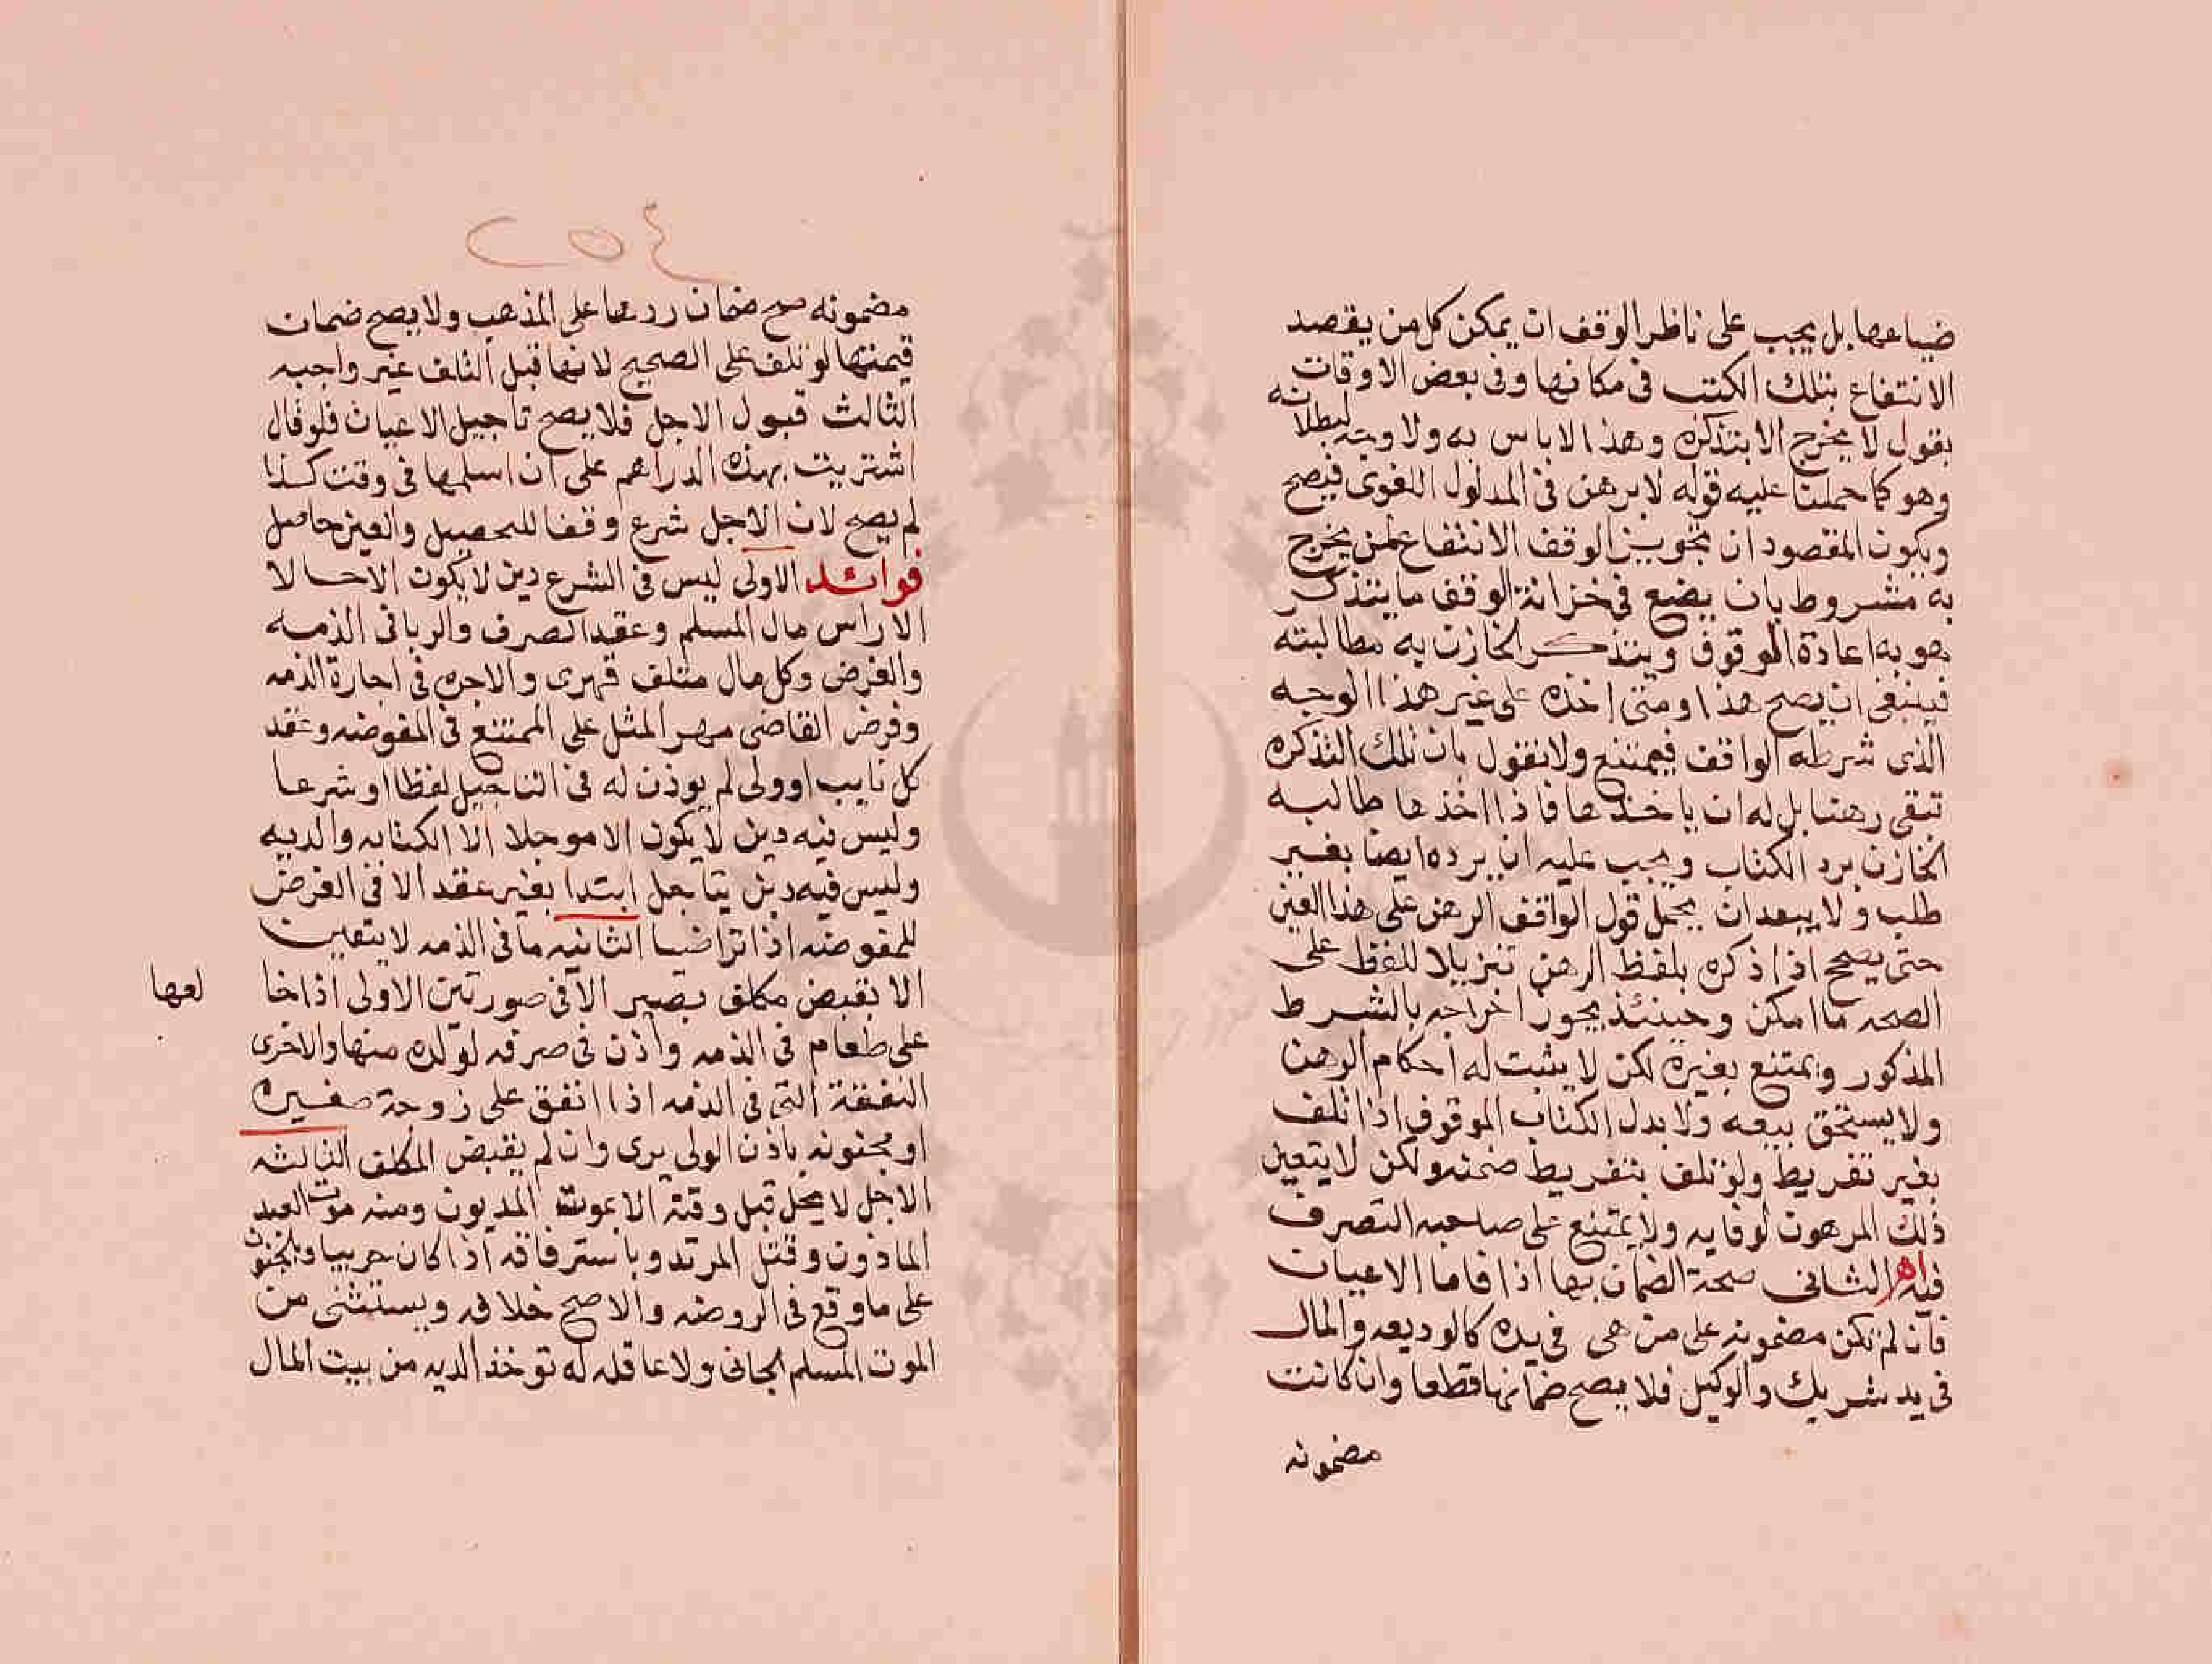 ضياعها بل يجب على ناظر الوقف ان يمكن كل من يقصد
الانتفاع بتلك الكتب في مكانها وفي بعض الاوقات
يقول لا يخرج الا بتذكره وهذا لا باس به ولا وجه لبطلانه
وهو كما حملنا عليه قوله لا يرهن في المدلول اللغوي فيصح
ويكون المقصود ان تجويز الوقف الانتفاع لمن يخرج
به مشروط بان يضع في خزانة الوقف ما يتذكر
هو به اعادة الموقوف ويتذكر الخازن به مطالبته
فينبغي ان يصح هذا ومتى اخذه على غير هذا الوجه
الذي شرطه الواقف فيمتنع ولا نقول بان تلك التذكره
تبقى رهنا بل له ان ياخذها فاذا اخذها طالبه
الخازن برد الكتاب ويجب عليه ان يرده ايضا بغير
طلب ولا يبعد ان يحمل قول الواقف الرهن على هذا
حتى يصح اذا ذكره بلفظ الرهن تنزيلا للفظ على
الصحه ما امكن وحينئذ يجوز اخراجه بالشرط
المذكور ويمتنع بغيره لكن لا يثبت له احكام الرهن
ولا يستحق بيعه ولا بدل الكتاب الموقوف اذا تلف
بغير تفريط ولو تلف بتفريط ضمنه ولكن لا يتعين
ذلك المرهون لوفايه ولا يمتنع على صاحبه التصرف
فيه اه الثاني صحة الضمان بها اذا فاما الاعيان
فان لم تكن مضمونه على من هي في يده كالوديعه والمال
في يد شريك والوكيل فلا يصح ضمانها قطعا وان كانت
مضمونه
٢٥٤
مضمونه صح ضمان ردها على المذهب ولا يصح ضمان
قيمتها لو تلف على الصحيح لانها قبل التلف غير واجبه
الثالث قبول الاجل فلا يصح تاجيل الاعيان فلو قال
اشتريت بهذه الدراهم على ان اسلمها في وقت كذا
لم يصح لان الاجل شرع وقفا للتحصيل والعين حاصل
فوائد الاولى ليس في الشرع دين لا يكون الا حالا
الا راس مال المسلم وعقد الصرف والربا في الذمه
والقرض وكل مال متلف قهري والاجره في اجارة الذمه
وفرض القاضي مهر المثل على الممتنع في المفوضه وعقد
كل نايب او ولي لم يوذن له في التاجيل لفظا او شرعا
وليس فيه دين لا يكون الا موجلا الا الكتابه والديه
وليس فيه دين يتاجل ابتدا بغير عقد الا في الفرض
للمفوضه اذا تراضيا الثانيه ما في الذمه لا يتعين
الا بقبض مكلف بصير الا في صورتين الاولى اذا خا
لعها
على طعام في الذمه واذن في صرفه لولده منها والاخرى
النفقة التي في الذمه اذا انفق على زوجة صغيره
او مجنونه باذن الولي يبرى وان لم يقبض المكلف الثالثه
الاجل لا يحل قبل وقته الا بموت المديون ومنه موت العبد
الماذون وقتل المرتد وباسترقاقه اذا كان حربيا وبالجنون
على ما وقع في الروضه والاصح خلافه ويستثنى من
الموت المسلم الجاني ولا عاقله له توخذ الديه من بيت المال